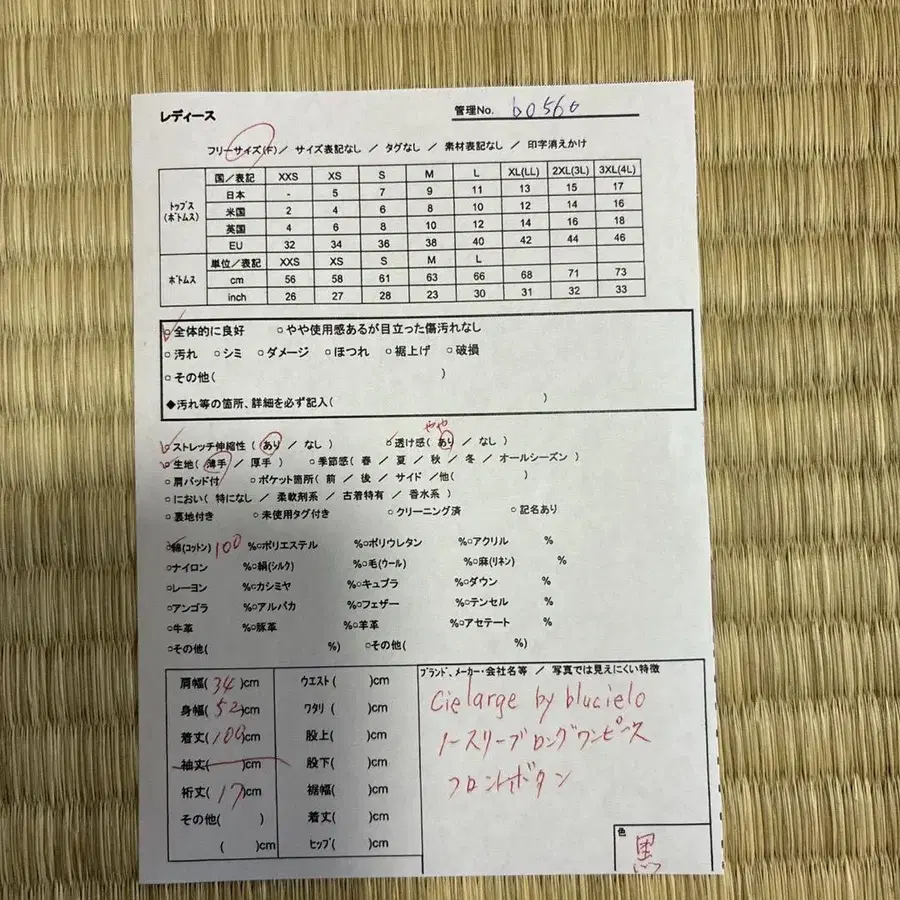 レディース 管理No. b0560
フリーサイズ(F)/ サイズ表記なし / タグなし / 素材表記なし / 印字消えかけ
トップス(ボトムス) 国/表記 XXS XS S M L XL(LL) 2XL(3L) 3XL(4L)
日本 - 5 7 9 11 13 15 17
米国 2 4 6 8 10 12 14 16
英国 4 6 8 10 12 14 16 18
EU 32 34 36 38 40 42 44 46
ボトムス 単位/表記 XXS XS S M L
cm 56 58 61 63 66 68 71 73
inch 26 27 28 23 30 31 32 33
○全体的に良好 ○やや使用感あるが目立った傷汚れなし
○汚れ ○シミ ○ダメージ ○ほつれ ○裾上げ ○破損
○その他( )
◆汚れ等の箇所、詳細を必ず記入( )
やや
○ストレッチ伸縮性 ( あり / なし ) ○透け感( あり / なし )
○生地( 薄手 / 厚手 ) ○季節感( 春 / 夏 / 秋 / 冬 / オールシーズン )
○肩パッド付 ○ポケット箇所( 前 / 後 / サイド /他( )
○におい( 特になし / 柔軟剤系 / 古着特有 / 香水系 )
○裏地付き ○未使用タグ付き ○クリーニング済 ○記名あり
○綿(コットン) 100 %○ポリエステル %○ポリウレタン %○アクリル %
○ナイロン %○絹(シルク) %○毛(ウール) %○麻(リネン) %
○レーヨン %○カシミヤ %○キュプラ %○ダウン %
○アンゴラ %○アルパカ %○フェザー %○テンセル %
○牛革 %○豚革 %○羊革 %○アセテート %
○その他( %) ○その他( %)
肩幅( 34 )cm ウエスト( )cm
身幅( 52 )cm ワタリ( )cm
着丈( 109 )cm 股上( )cm
袖丈( )cm 股下( )cm
裄丈( 17 )cm 裾幅( )cm
その他( ) 着丈( )cm
( )cm ヒップ( )cm
ブランド、メーカー・会社名等 / 写真では見えにくい特徴
Cielarge by blucielo
ノースリーブロングワンピース
フロントボタン
色
黒